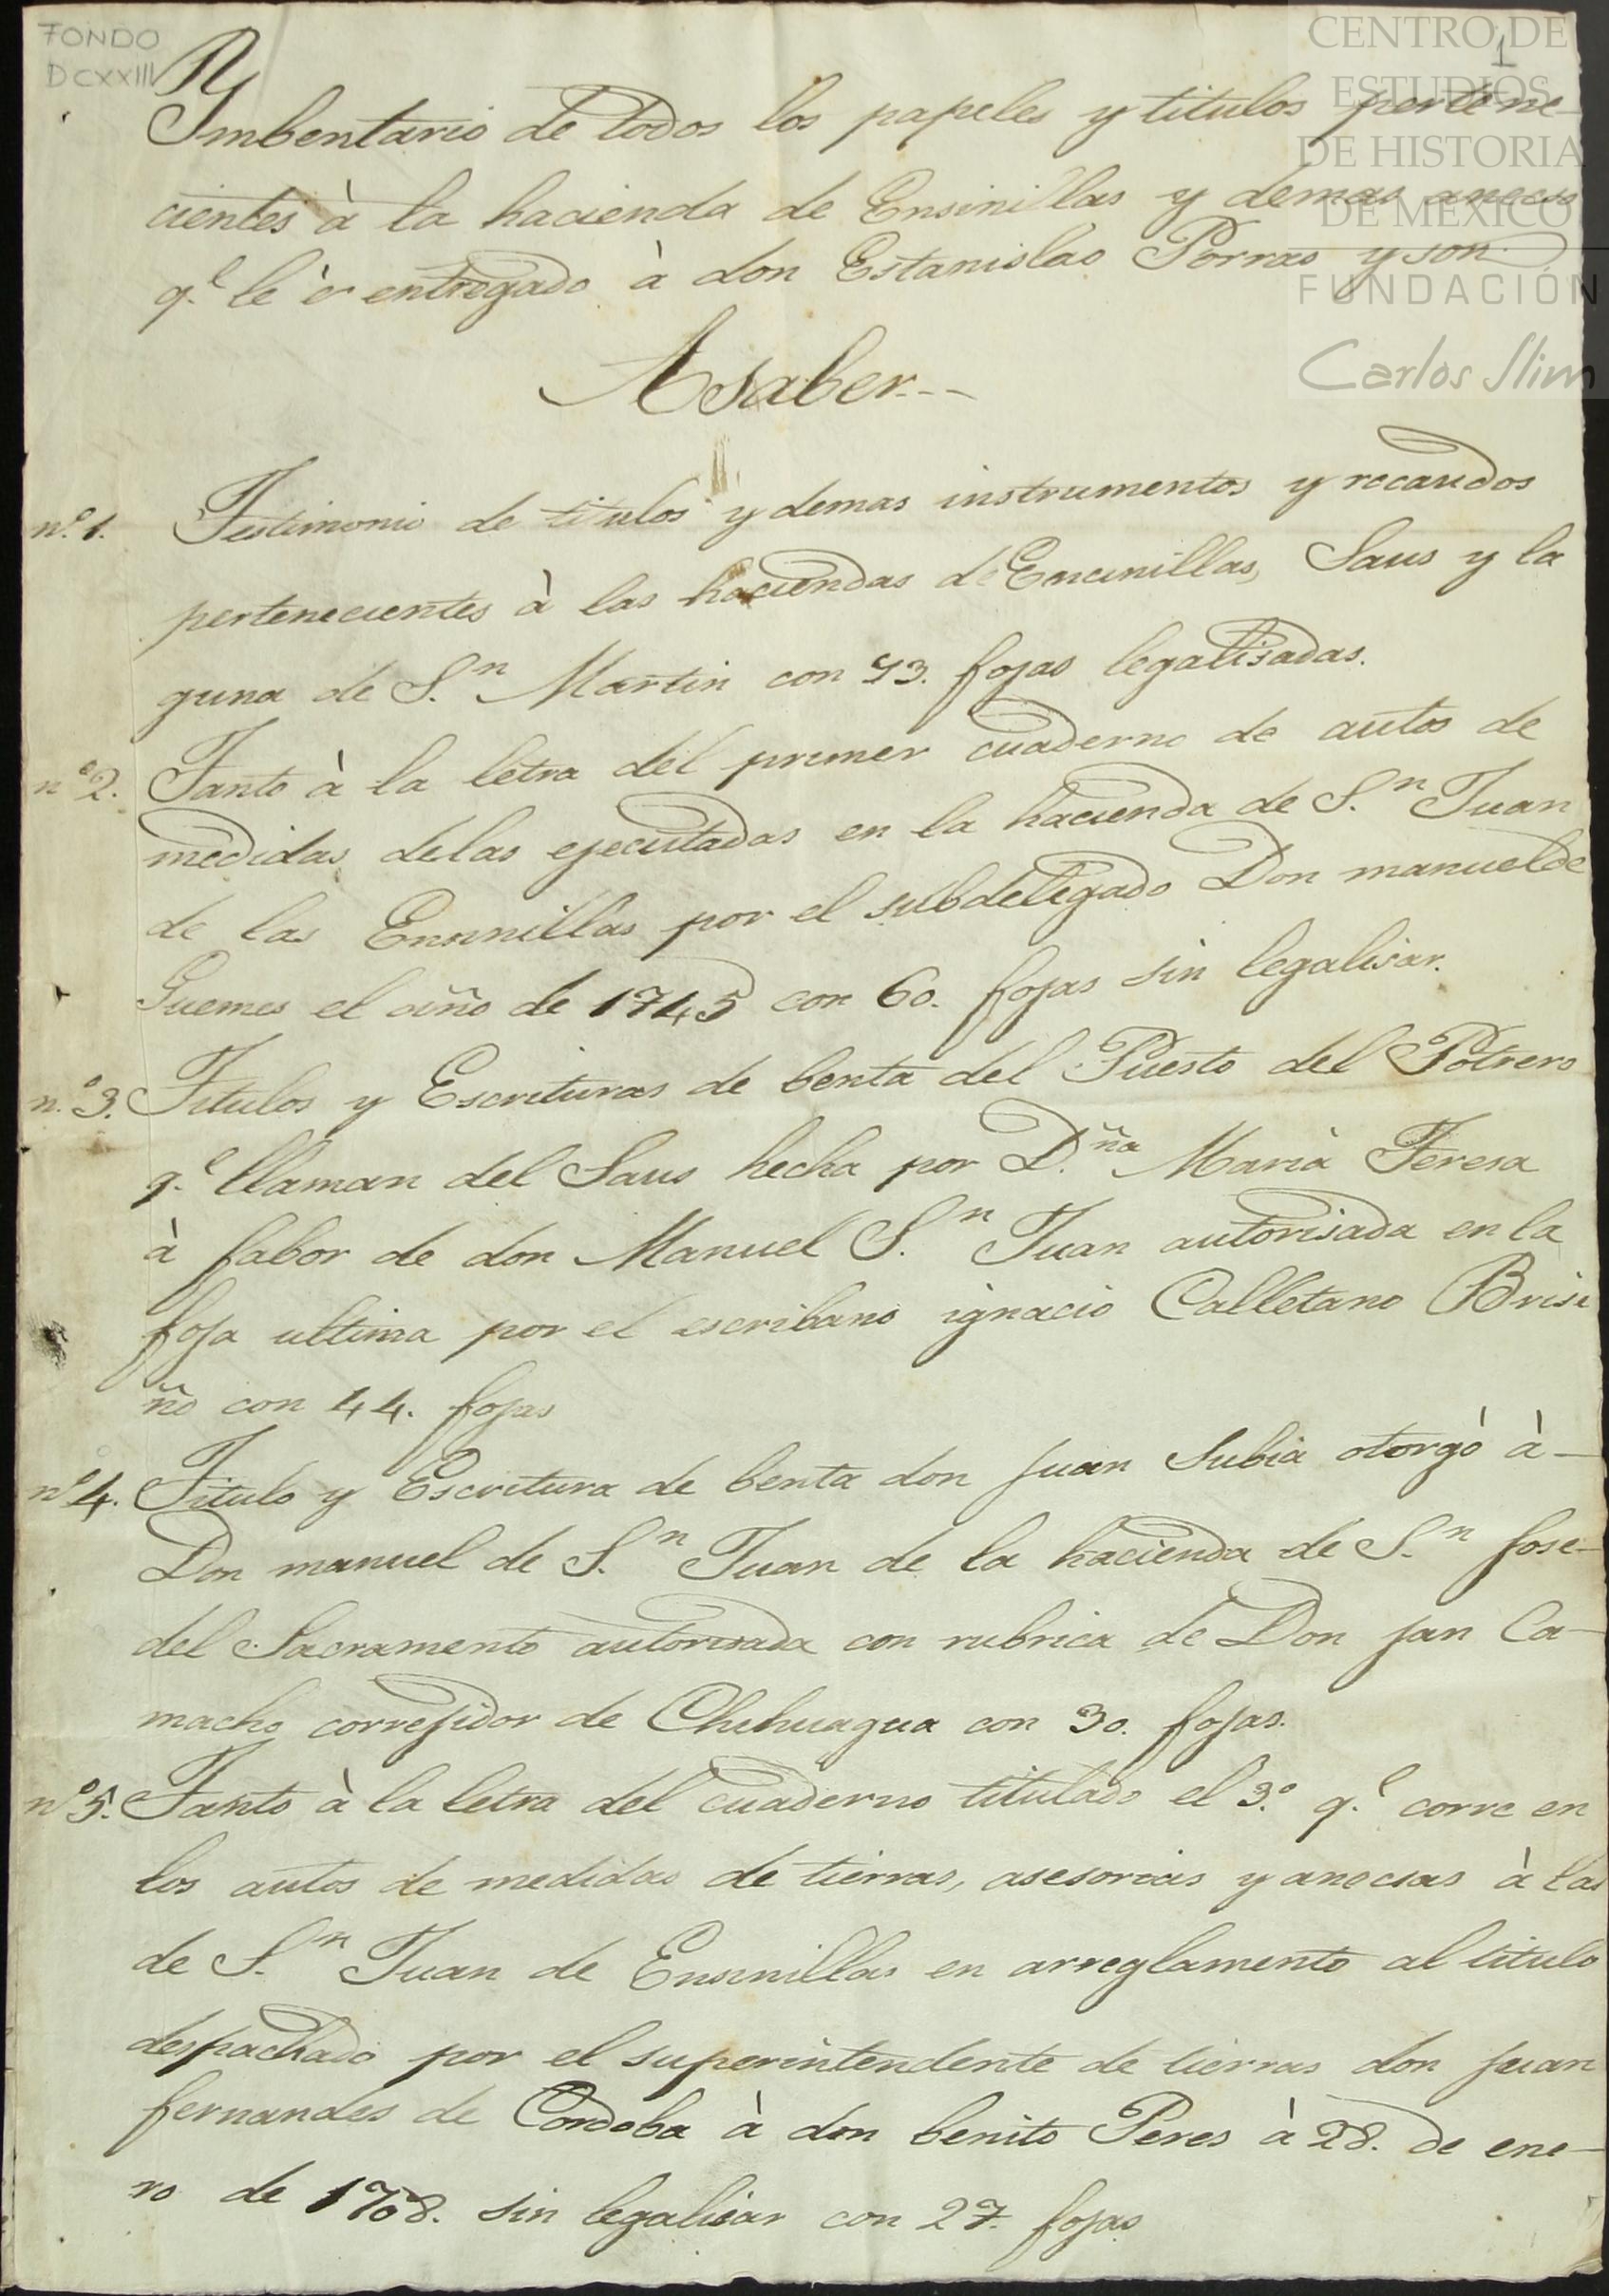 FONDO
DCXXIII
1
CENTRO DE
ESTUDIOS
DE HISTORIA
DE MÉXICO
FUNDACIÓN
Carlos Slim
Imbentario de todos los papeles y titulos pertene-
cientes à la hacienda de Ensinillas y demas anecso
q.e le è entregado à don Estanislao Porras y son
A saber---
n.o 1. Testimonio de titulos y demas instrumentos y recaudos
pertenecientes à las haciendas de Encinillas, Saus y la
guna de S.n Martin con 93. fojas legalisadas.
n.o 2. Tanto à la letra del primer cuaderno de autos de
medidas delas ejecutadas en la hacienda de S.n Juan
de las Ensinillas por el subdelegado Don manuel de
Guemes el año de 1745 con 60. fojas sin legalisar.
n.o 3. Titulos y Escrituras de benta del Puesto del Potrero
q.e llaman del Saus hecha por D.ña Maria Teresa
à fabor de don Manuel S.n Juan autorisada en la
foja ultima por el escribano ignacio Calletano Brise
ño con 44. fojas
n.o 4. Titulo y Escritura de benta don Juan Subia otorgó à-
Don manuel de S.n Juan de la hacienda de S.n Jose-
del Sacramento autorisada con rubrica de Don jan Ca-
macho correjidor de Chihuagua con 30. fojas.
n.o 5. Tanto à la letra del cuaderno titulado el 3.o q.e corre en
los autos de medidas de tierras, asesorias y anecsas à las
de S.n Juan de Ensinillas en arreglamento al titulo
despachado por el superintendente de tierras don juan
fernandes de Cordoba à don benito Peres à 28. de ene-
ro de 1708. sin legalisar con 27. fojas